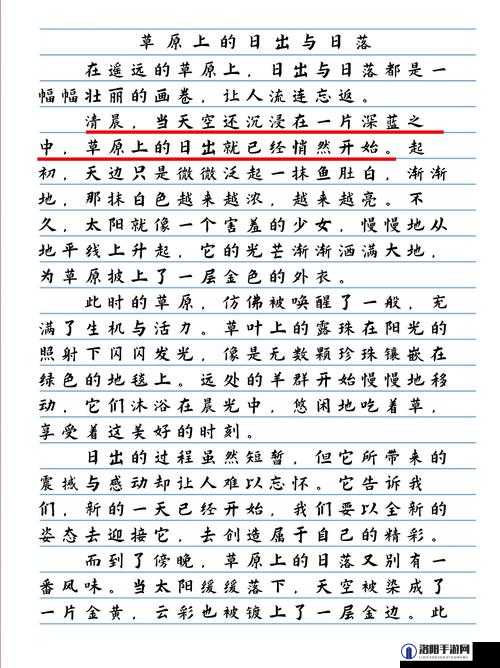 草原上的日出与日落
在遥远的草原上，日出与日落都是一
幅幅壮丽的画卷，让人流连忘返。
清晨，当天空还沉浸在一片深蓝之
中，草原上的日出就已经悄然开始。起
初，天边只是微微泛起一抹鱼肚白，渐渐
地，那抹白色越来越浓，越来越亮。不
久，太阳就像一个害羞的少女，慢慢地从
地平线上升起，它的光芒渐渐洒满大地，
为草原披上了一层金色的外衣。
此时的草原，仿佛被唤醒了一般，充
满了生机与活力。草叶上的露珠在阳光的
照射下闪闪发光，像是无数颗珍珠镶嵌在
绿色的地毯上。远处的羊群开始慢慢地移
动，它们沐浴在晨光中，悠闲地吃着草，
享受着这美好的时刻。
日出的过程虽然短暂，但它所带来的
震撼与感动却让人难以忘怀。它告诉我
们，新的一天已经开始，我们要以全新的
姿态去迎接它，去创造属于自己的精彩。
而到了傍晚，草原上的日落又别有一
番风味。当太阳缓缓落下，天空被染成了
一片金黄，云彩也被镀上了一层金边。此
洛阳手游网